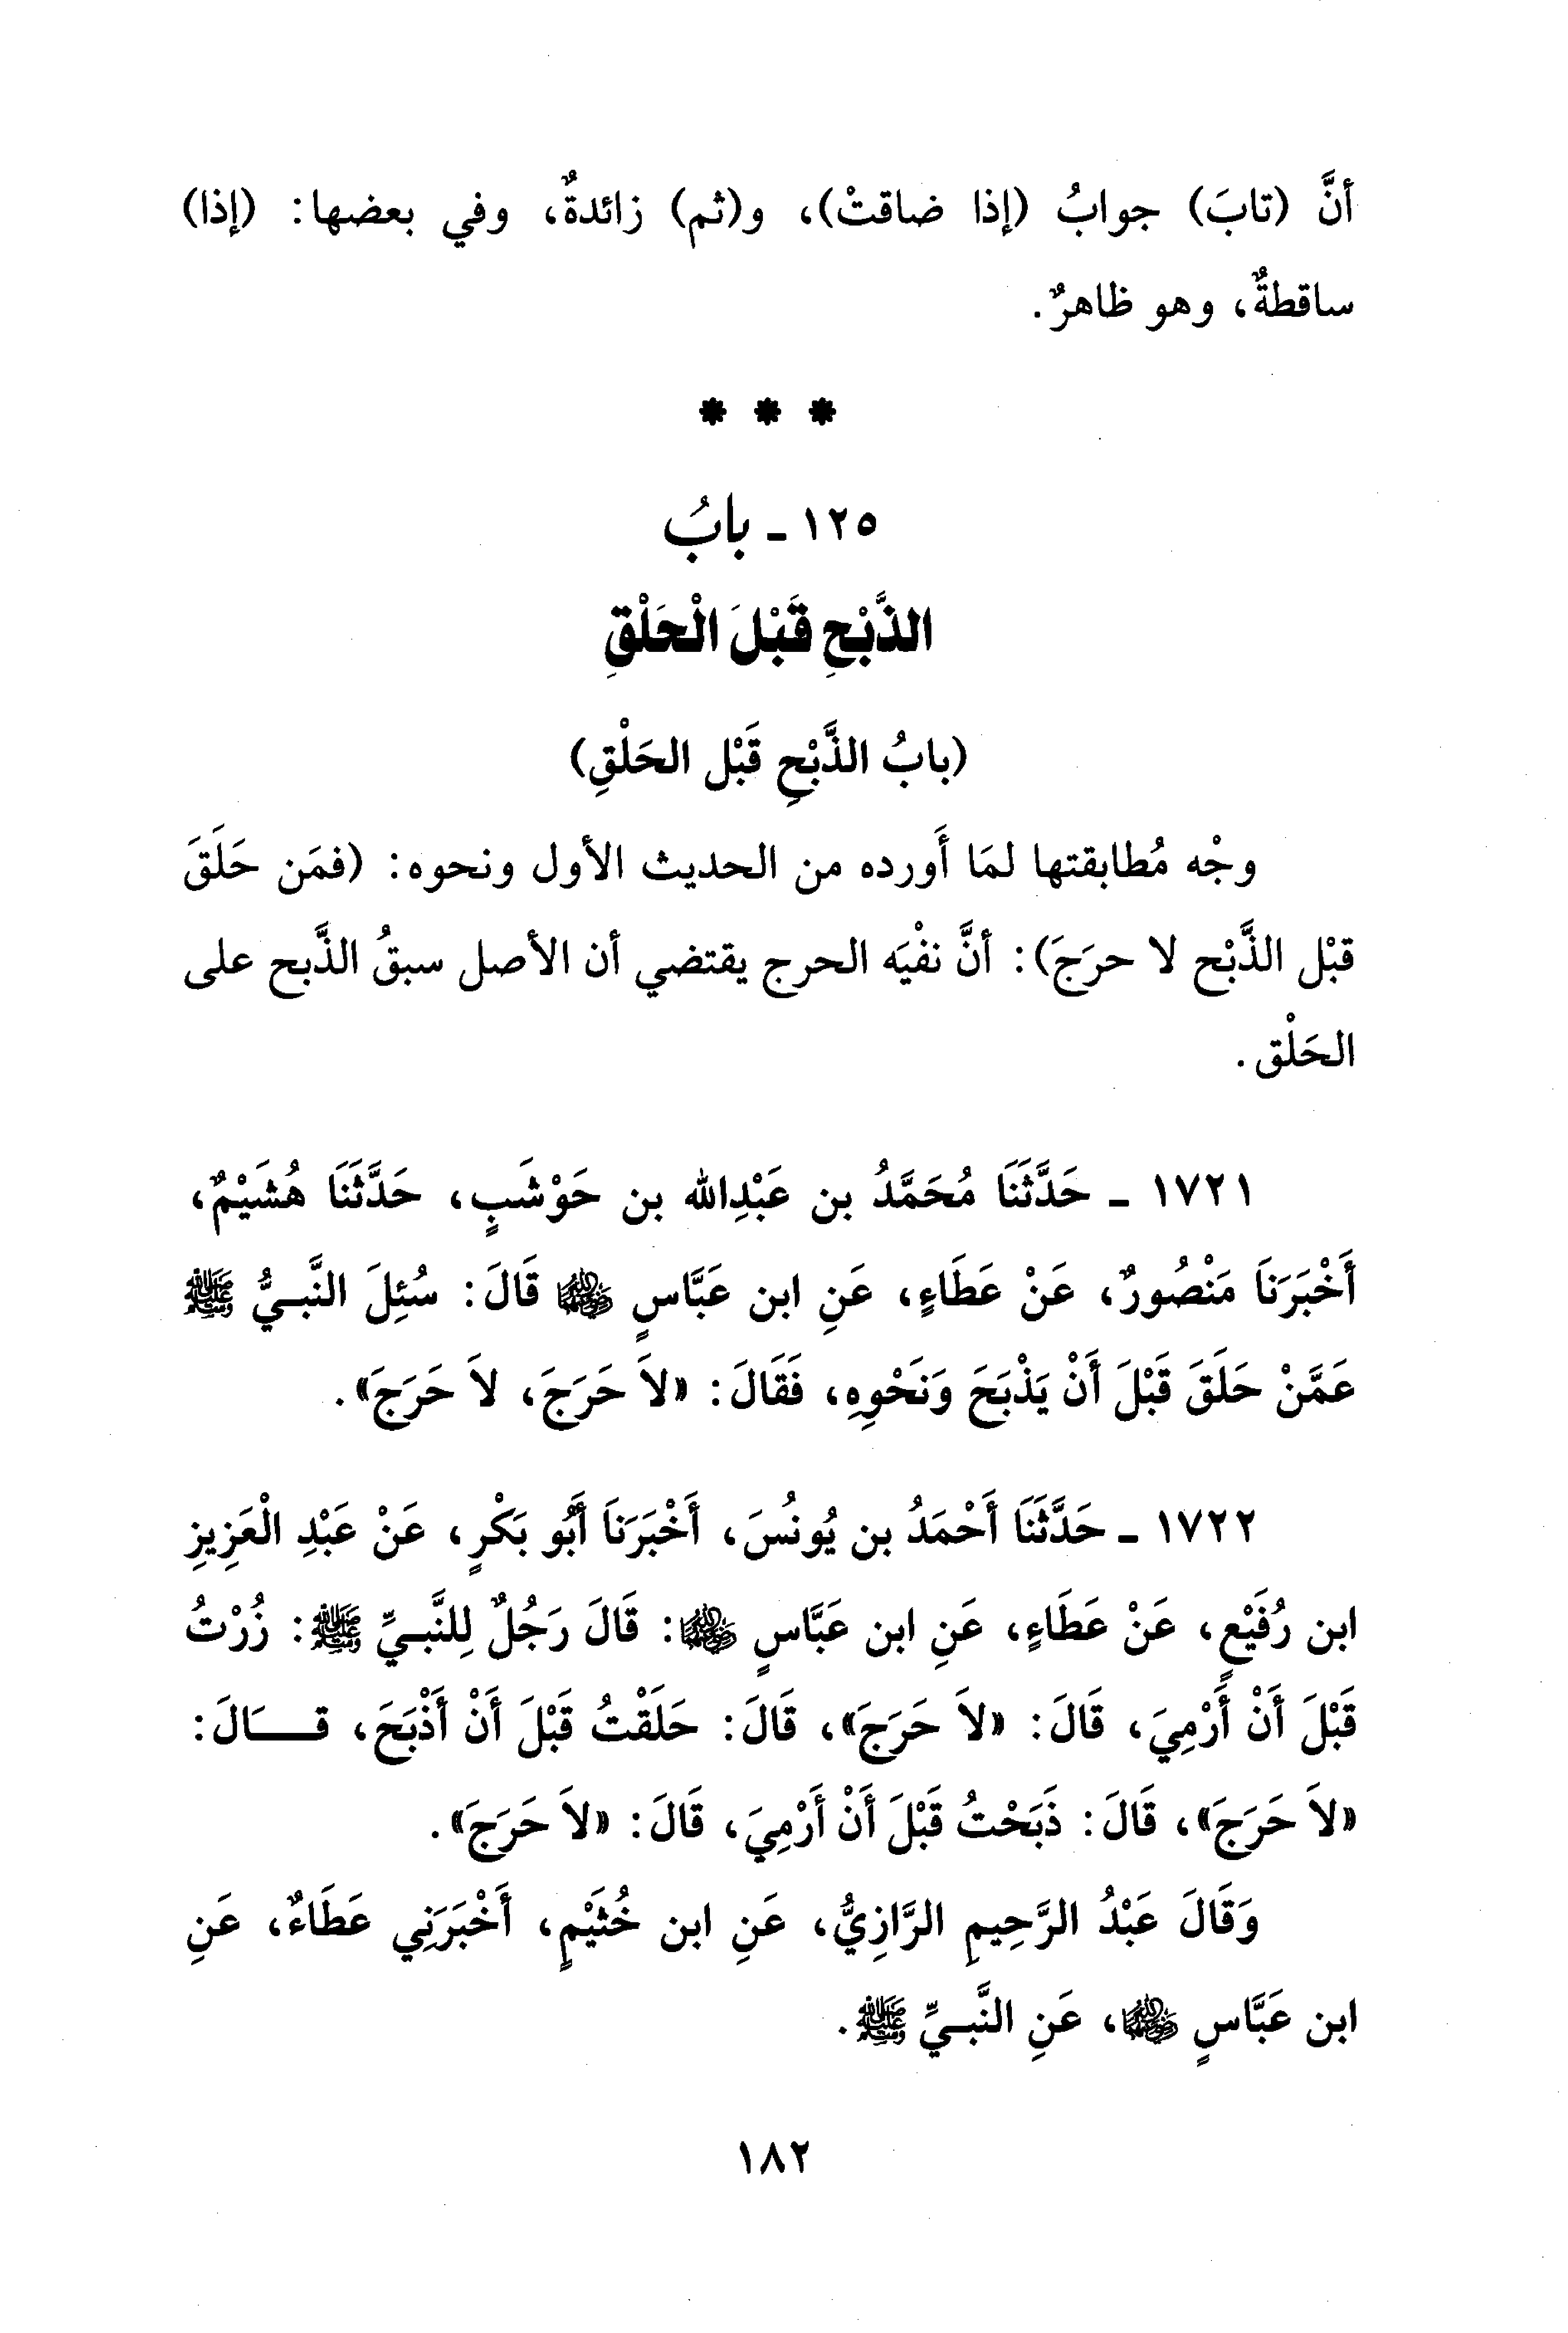 أنَّ (تابَ) جوابُ (إذا ضاقتْ)، و(ثم) زائدةٌ، وفي بعضها: (إذا)
ساقطةٌ، وهو ظاهرٌ.
* * *
١٢٥ ـ بابُ
الذَّبْحِ قَبْلَ الْحَلْقِ
(بابُ الذَّبْحِ قَبْل الحَلْقِ)
وجْه مُطابقتها لمَا أَورده من الحديث الأول ونحوه: (فمَن حَلَقَ
قبْل الذَّبْح لا حرَجَ): أنَّ نفْيَه الحرج يقتضي أن الأصل سبقُ الذَّبح على
الحَلْق.
١٧٢١ ـ حَدَّثَنَا مُحَمَّدُ بن عَبْدِالله بن حَوْشَبٍ، حَدَّثَنَا هُشَيْمٌ،
أَخْبَرَنَا مَنْصُورٌ، عَنْ عَطَاءٍ، عَنِ ابن عَبَّاسٍ رضي الله عنهما قَالَ: سُئِلَ النَّبيُّ ﷺ
عَمَّنْ حَلَقَ قَبْلَ أَنْ يَذْبَحَ وَنَحْوِهِ، فَقَالَ: «لاَ حَرَجَ، لاَ حَرَجَ».
١٧٢٢ ـ حَدَّثَنَا أَحْمَدُ بن يُونُسَ، أَخْبَرَنَا أَبُو بَكْرٍ، عَنْ عَبْدِ الْعَزِيزِ
ابن رُفَيْعٍ، عَنْ عَطَاءٍ، عَنِ ابن عَبَّاسٍ رضي الله عنهما: قَالَ رَجُلٌ لِلنَّبيِّ ﷺ: زُرْتُ
قَبْلَ أَنْ أَرْمِيَ، قَالَ: «لاَ حَرَجَ»، قَالَ: حَلَقْتُ قَبْلَ أَنْ أَذْبَحَ، قَـــالَ:
«لاَ حَرَجَ»، قَالَ: ذَبَحْتُ قَبْلَ أَنْ أَرْمِيَ، قَالَ: «لاَ حَرَجَ».
وَقَالَ عَبْدُ الرَّحِيمِ الرَّازِيُّ، عَنِ ابن خُثَيْمٍ، أَخْبَرَنِي عَطَاءٌ، عَنِ
ابن عَبَّاسٍ رضي الله عنهما، عَنِ النَّبيِّ ﷺ.
١٨٢